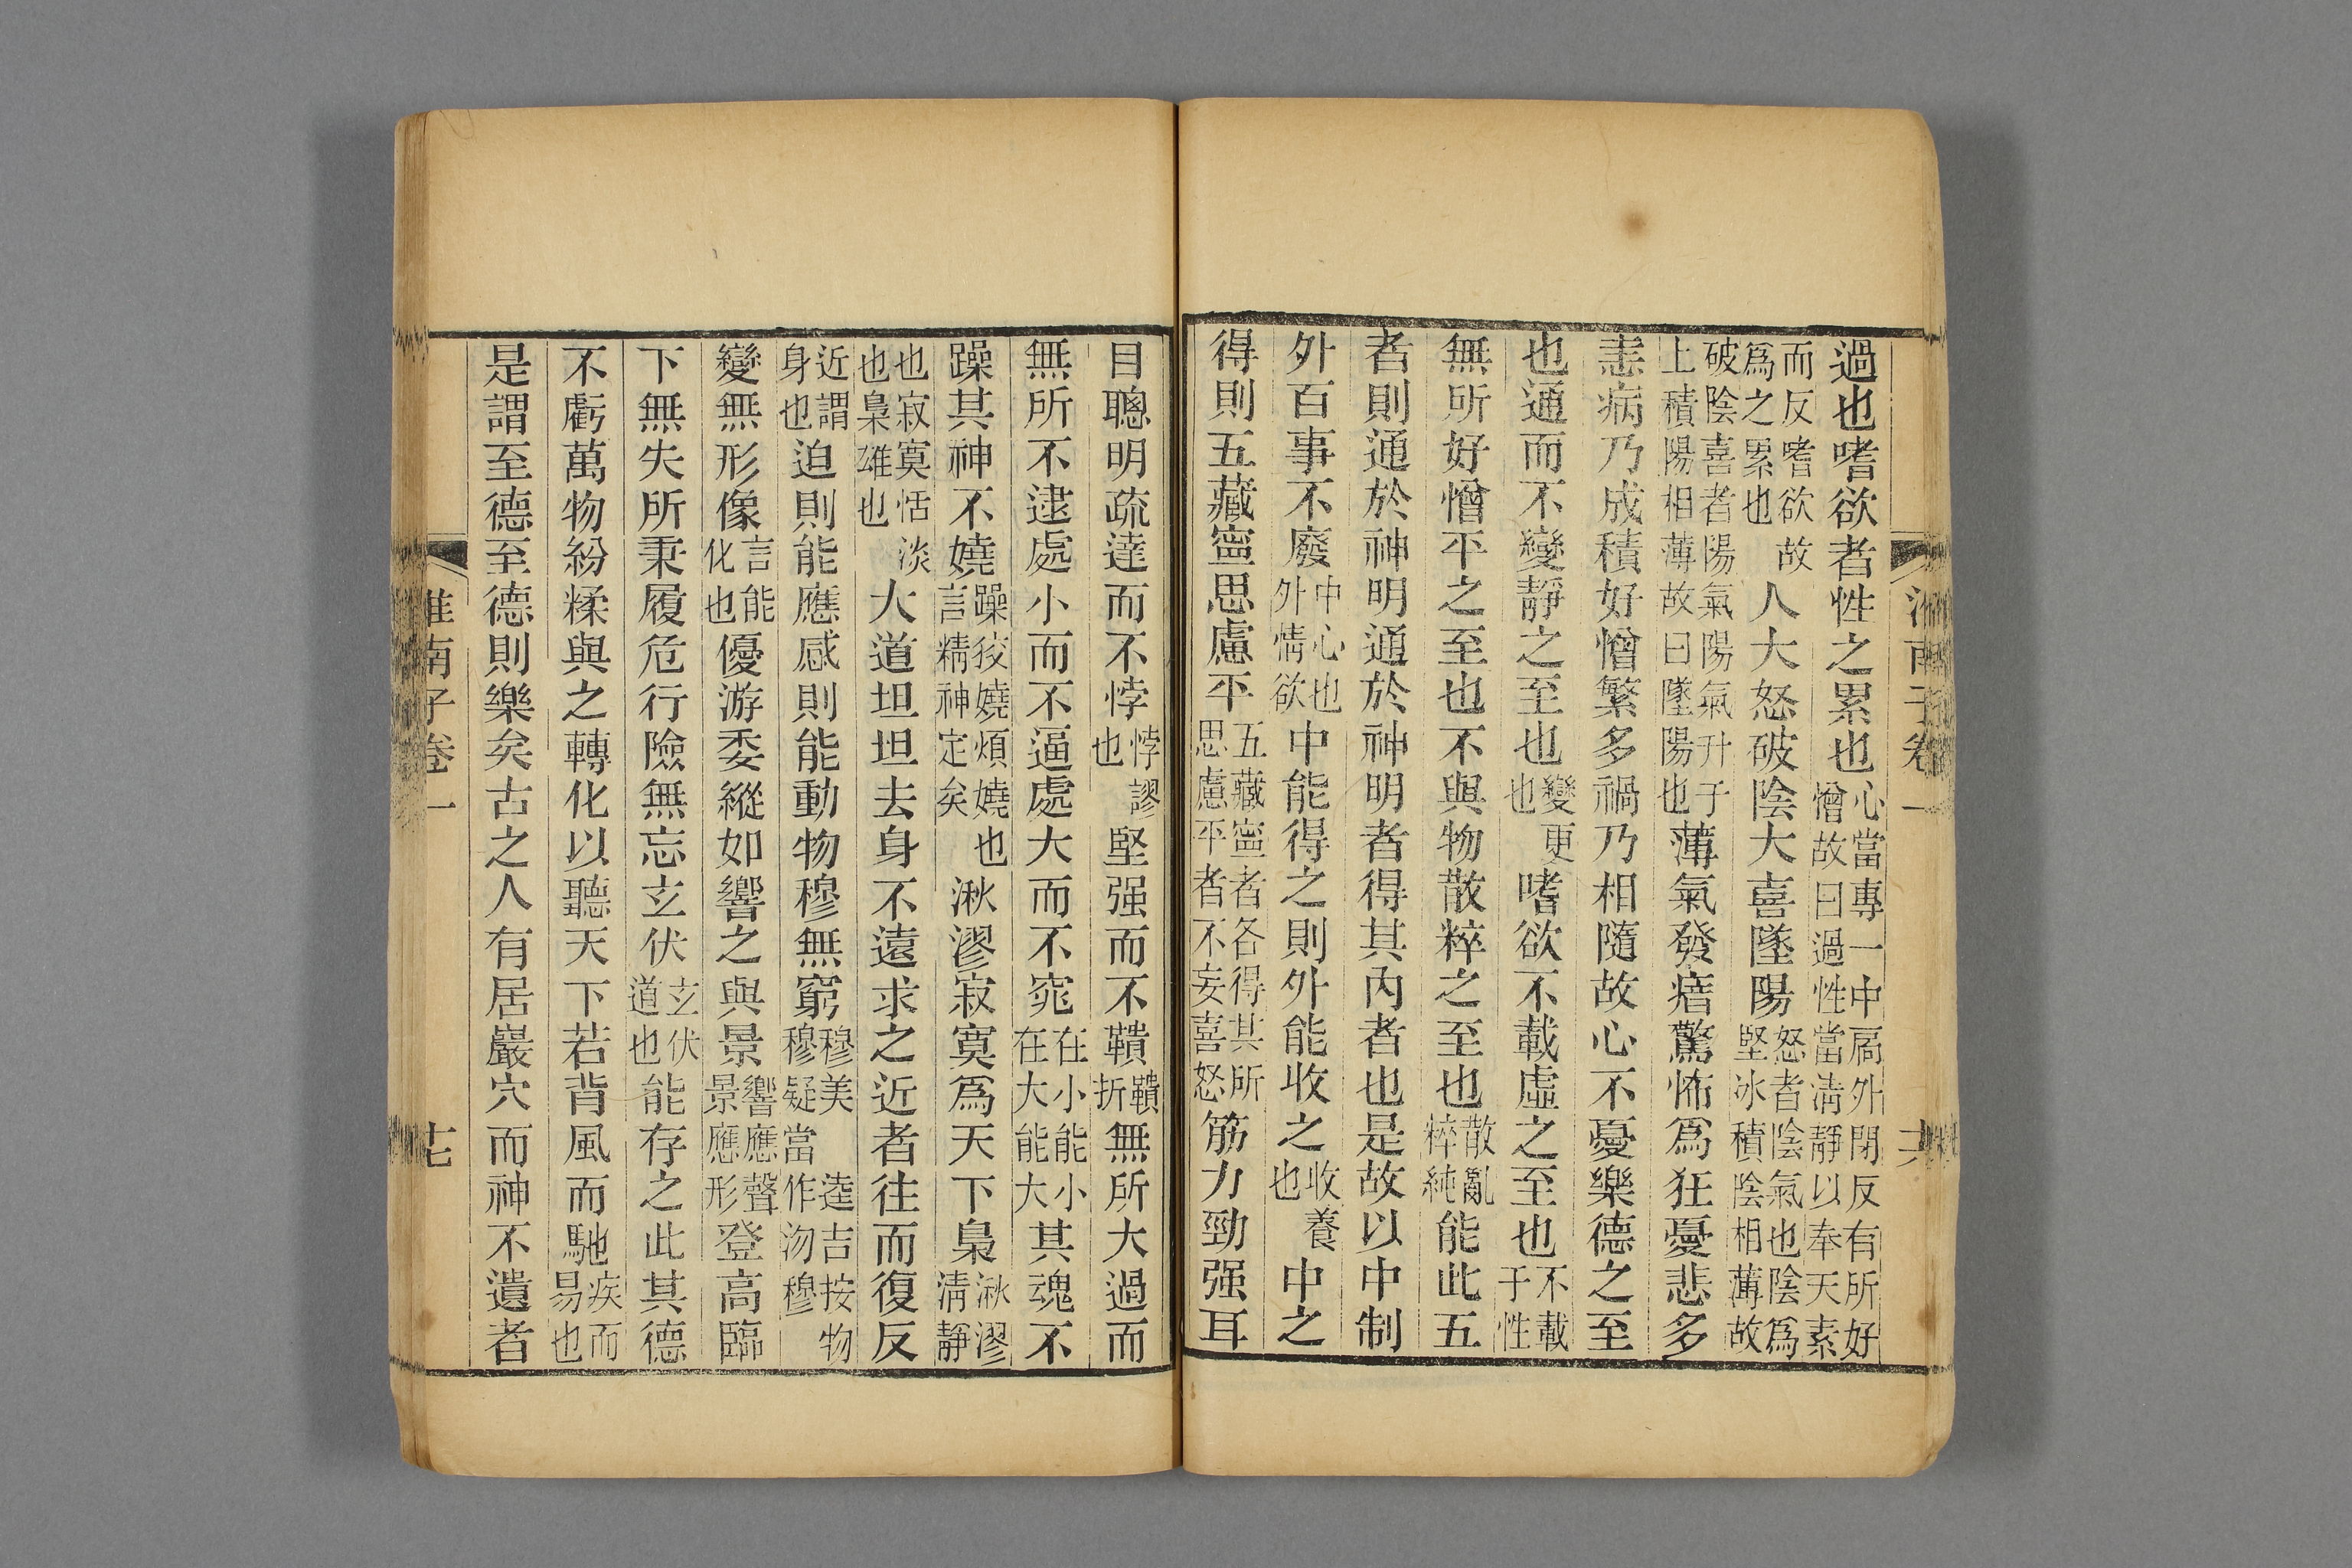 淮南子卷一
過也嗜欲者性之累也心當專一中扃外閉反有所好憎故曰過性當清靜以奉天素
而反嗜欲故爲之累也人大怒破陰大喜墜陽怒者陰氣也陰爲堅冰積陰相薄故
破陰喜者陽氣陽氣升于上積陽相薄故曰墜陽也薄氣發瘖驚怖爲狂憂悲多
恚病乃成積好憎繁多禍乃相隨故心不憂樂德之至
也通而不變靜之至也變更也嗜欲不載虛之至也不載于性
無所好憎平之至也不與物散粹之至也散亂粹純能此五
者則通於神明通於神明者得其內者也是故以中制
外百事不廢中心也外情欲中能得之則外能收之收養也中之
得則五藏寧思慮平五藏寧者各得其所思慮平者不妄喜怒筋力勁强耳
目聰明疏達而不悖悖謬也堅强而不鞼鞼折無所大過而
無所不逮處小而不逼處大而不窕在小能小在大能大其魂不
躁其神不嬈躁狡嬈煩嬈也言精神定矣湫漻寂寞爲天下梟湫漻清靜
也寂寞恬淡也梟雄也大道坦坦去身不遠求之近者往而復反
近謂身也迫則能應感則能動物穆無窮穆美 逵吉按物穆疑當作沕穆
變無形像言能化也優游委縱如響之與景響應聲景應形登高臨
下無失所秉履危行險無忘玄伏玄伏道也能存之此其德
不虧萬物紛糅與之轉化以聽天下若背風而馳疾而易也
是謂至德至德則樂矣古之人有居巖穴而神不遺者
淮南子卷一